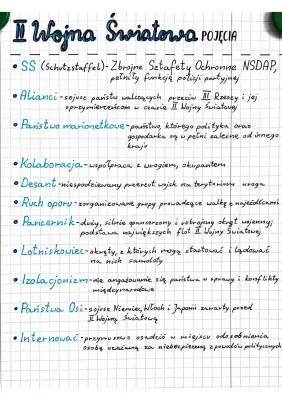 II Wojna Światowa POJĘCIA
• SS (Schutzstaffel) - Zbrojne Sztafety Ochronne NSDAP,
pełniły funkcję policji partyjnej
• Alianci - sojusz państw walczących przeciw III Rzeszy i jej
sprzymierzeńcom w czasie II Wojny Światowej
• Państwo marionetkowe - państwo, którego polityka oraz
gospodarka są w pełni zależne od innego
kraju
• Kolaboracja - współpraca z wrogiem, okupantem
• Desant - niespodziewany przerzut wojsk na terytorium wroga
• Ruch oporu - zorganizowane grupy prowadzące walkę z najeźdźcami
• Pancernik - duży, silnie opancerzony i uzbrojony okręt wojenny;
podstawa największych flot II Wojny Światowej
• Lotniskowiec - okręty, z których mogą startować i lądować
na nich samoloty
• Izolacjonizm - nie angażowanie się państwa w sprawy i konflikty
międzynarodowe
• Państwa Osi - sojusz Niemiec, Włoch i Japonii zawarty przed
II Wojną Światową
• Internować - przymusowo osadzić w miejscu odosobnienia
osobę uznaną za niebezpieczną z powodów politycznych